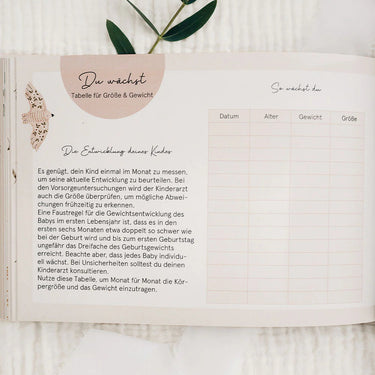 Du wächst
Tabelle für Größe & Gewicht
Die Entwicklung deines Kindes
Es genügt, dein Kind einmal im Monat zu messen,
um seine aktuelle Entwicklung zu beurteilen. Bei
den Vorsorgeuntersuchungen wird der Kinderarzt
auch die Größe überprüfen, um mögliche Abwei-
chungen frühzeitig zu erkennen.
Eine Faustregel für die Gewichtsentwicklung des
Babys im ersten Lebensjahr ist, dass es in den
ersten sechs Monaten etwa doppelt so schwer wie
bei der Geburt wird und bis zum ersten Geburtstag
ungefähr das Dreifache des Geburtsgewichts
erreicht. Beachte aber, dass jedes Baby individu-
ell wächst. Bei Unsicherheiten solltest du deinen
Kinderarzt konsultieren.
Nutze diese Tabelle, um Monat für Monat die Kör-
pergröße und das Gewicht einzutragen.
So wächst du
Datum Alter Gewicht Größe